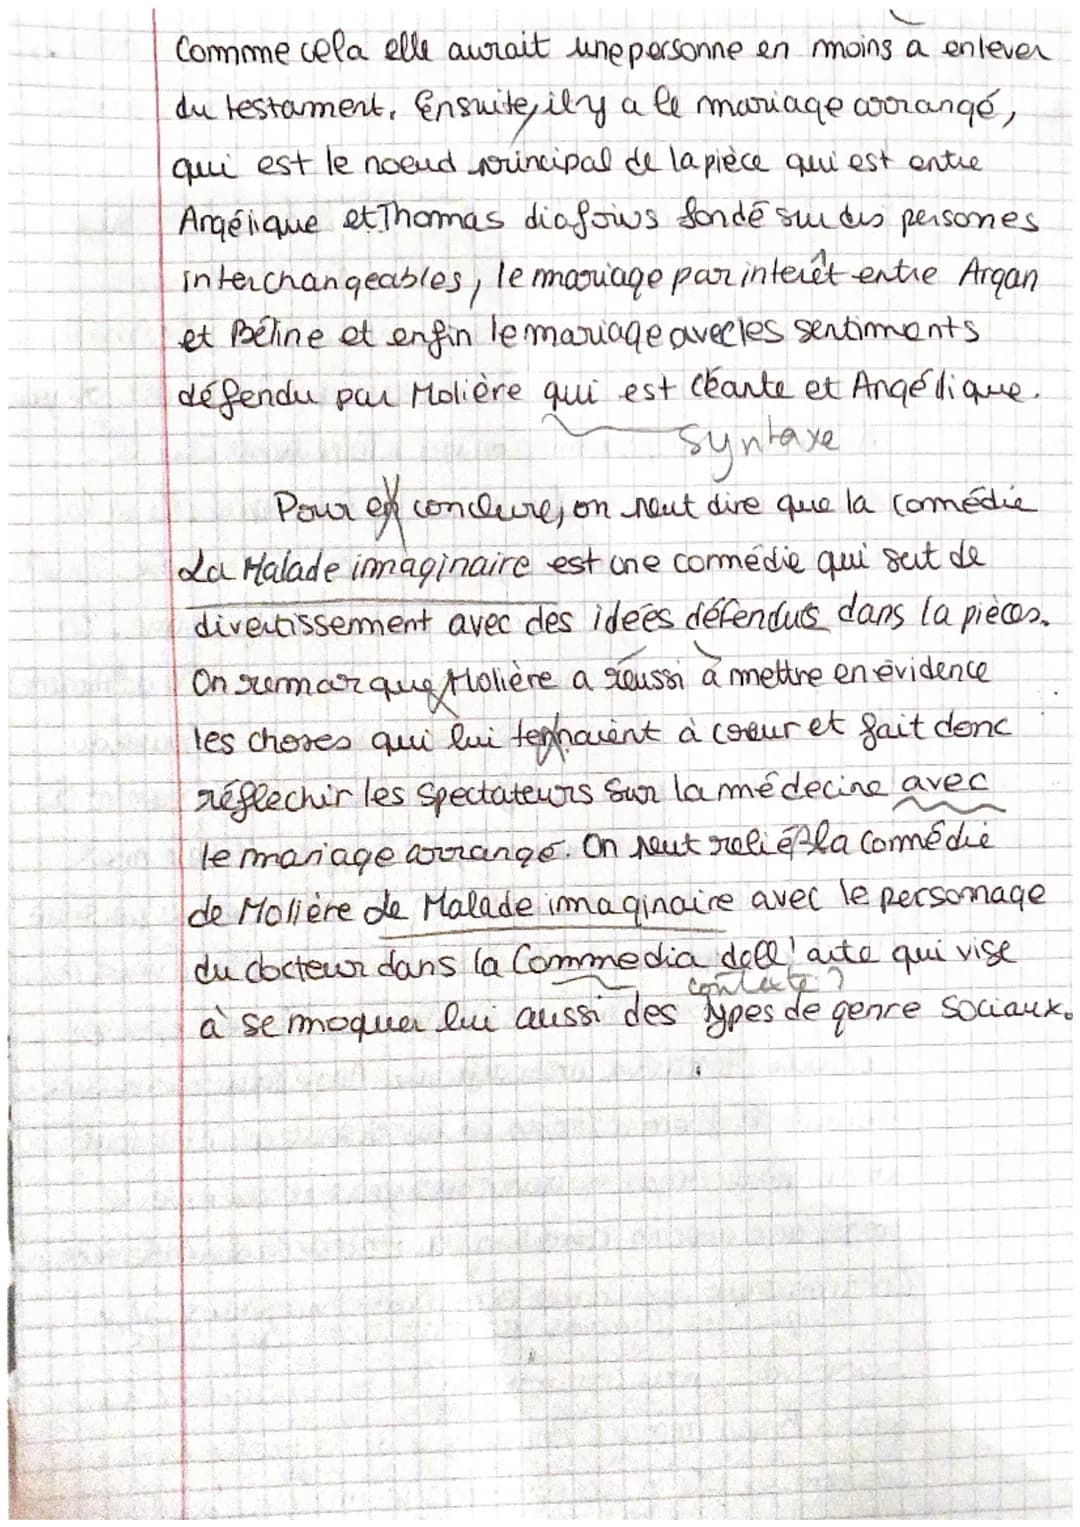 Commme cela elle aurait une personne en moins a enlever
du testament. Ensuite, il y a le mariage arrangé,
qui est le noeud principal de la pièce qui est entre
Angélique et Thomas diafoirus fondé sur des persones
interchangeables, le mariage par interêt entre Argan
et Béline et enfin le mariage avec les sentiments
défendu par Molière qui est Cléante et Angélique.
syntaxe
Pour en conclure, on peut dire que la comédie
La Malade imaginaire est une comédie qui sert de
divertissement avec des idées défendues dans la pièces.
On remarque Molière a réussi à mettre en évidence
les choses qui lui tennaient à coeur et fait donc
réflechir les spectateurs sur la médecine avec
le mariage arrangé. On peut relié la comédie
de Molière de Malade imaginaire avec le personnage
du docteur dans la Commedia dell'arte qui vise
contexte ?
à se moquer lui aussi des types de genre sociaux.